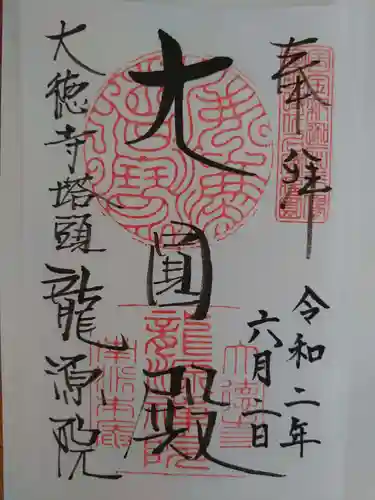 奉拝
令和二年
六月二日
大圓殿
大徳寺塔頭龍源院